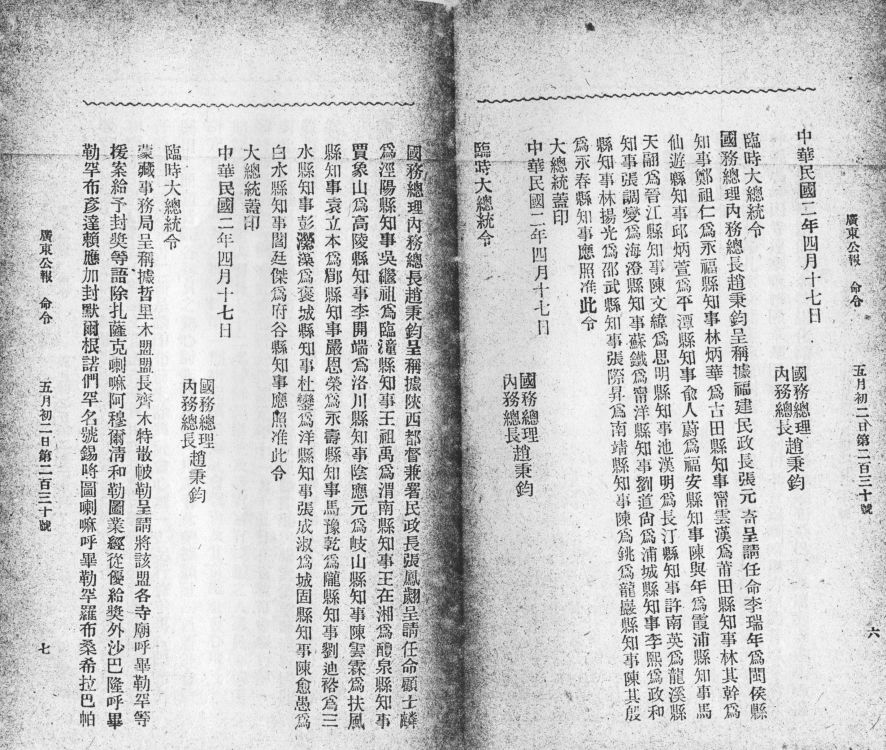 廣東公報　命令　五月初二日第二百三十號　六
中華民國二年四月十七日
國務總理
內務總長趙秉鈞
臨時大總統令
國務總理內務總長趙秉鈞呈稱據福建民政長張元奇呈請任命李瑞年爲閩侯縣
知事鄭祖仁爲永福縣知事林炳華爲古田縣知事甯雲漢爲莆田縣知事林其幹爲
仙遊縣知事邱炳萱爲平潭縣知事兪人蔚爲福安縣知事陳與年爲霞浦縣知事馬
天翮爲晉江縣知事陳文緯爲思明縣知事池漢明爲長汀縣知事許南英爲龍溪縣
知事張調燮爲海澄縣知事蘇鐵爲甯洋縣知事劉道尙爲浦城縣知事李熙爲政和
縣知事林揚光爲邵武縣知事張際昇爲南靖縣知事陳爲銚爲龍巖縣知事陳其殷
爲永春縣知事應照准此令
大總統蓋印
中華民國二年四月十七日
國務總理
內務總長趙秉鈞
臨時大總統令
國務總理內務總長趙秉鈞呈稱據陝西都督兼署民政長張鳳翽呈請任命顧士麟
爲涇陽縣知事吳繼祖爲臨潼縣知事王祖禹爲渭南縣知事王在湘爲醴泉縣知事
賈象山爲高陵縣知事李開端爲洛川縣知事陰應元爲岐山縣知事陳雲霖爲扶風
縣知事袁立本爲郿縣知事嚴恩榮爲永壽縣知事馬豫乾爲隴縣知事劉迪裕爲三
水縣知事彭藻爲褒城縣知事杜鑾爲洋縣知事張成淑爲城固縣知事陳愈愚爲
白水縣知事閻廷傑爲府谷縣知事應照准此令
大總統蓋印
中華民國二年四月十七日
國務總理
內務總長趙秉鈞
臨時大總統令
蒙藏事務局呈稱據哲里木盟盟長齊木特散帔勒呈請將該盟各寺廟呼畢勒罕等
援案給予封獎等語除扎薩克喇嘛阿穆爾淸和勒圖業經從優給獎外沙巴隆呼畢
勒罕布彥達賴應加封默爾根諾們罕名號錫哷圖喇嘛呼畢勒罕羅布桑希拉巴帕
廣東公報　命令　五月初二日第二百三十號　七